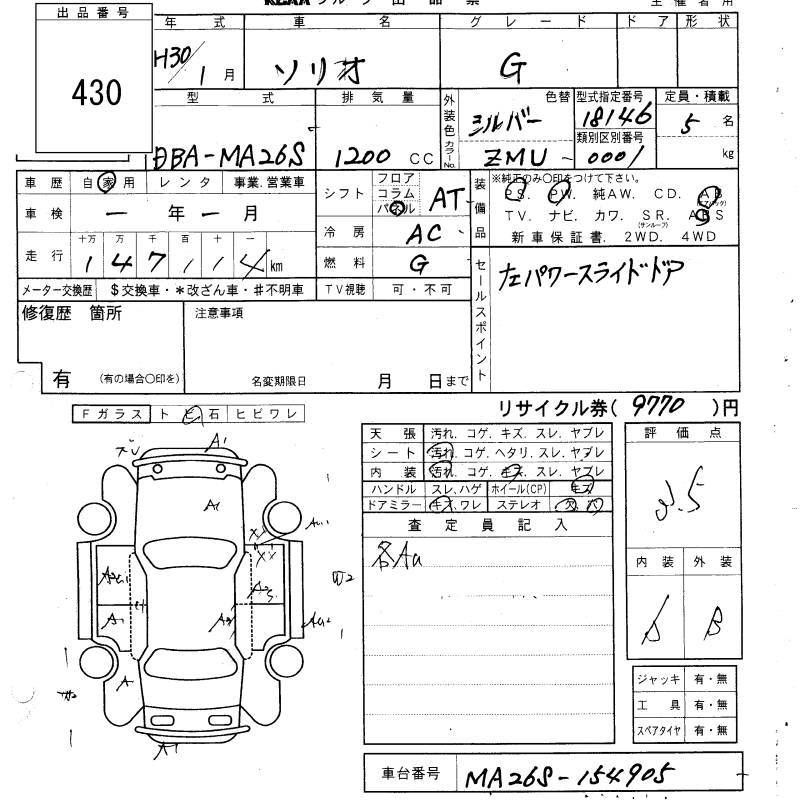 出品番号
430
年式 車名 グレード ドア 形状
H30/1月 ソリオ G
型式 排気量 外装色 カラーNo. 色替 型式指定番号 定員・積載
DBA-MA26S 1200 CC シルバー ZMU 18146 5名
類別区別番号
0001 kg
車歴 自家用 レンタ 事業.営業車
車検 一年一月
走行 十万 万 千 百 十 一
1 4 7 1 1 4 km
メーター交換歴 $交換車・*改ざん車・♯不明車
シフト フロア コラム パネル AT
冷房 AC
燃料 G
TV視聴 可・不可
装備品 ※純正のみ〇印をつけて下さい。
P.S. P.W. 純AW. C.D. AB(エアバック)
TV. ナビ. カワ. S.R.(サンルーフ) ABS
新車保証書. 2WD. 4WD
セールスポイント 左パワースライドドア
修復歴 箇所 注意事項
有 (有の場合〇印を) 名変期限日 月 日まで
リサイクル券( 9770 )円
Fガラス トビ石 ヒビワレ
天張 汚れ. コゲ. キズ. スレ. ヤブレ
シート 汚れ. コゲ. ヘタリ. スレ. ヤブレ
内装 汚れ. コゲ. キズ. スレ. ヤブレ
ハンドル スレ、ハゲ ホイール(CP) キズ
ドアミラー キズ、ワレ ステレオ 欠.バ
査定員記入
各Au
評価点
3.5
内装 外装
B
ジャッキ 有・無
工具 有・無
スペアタイヤ 有・無
A1
A1
A1
A
A1
車台番号 MA26S-154905